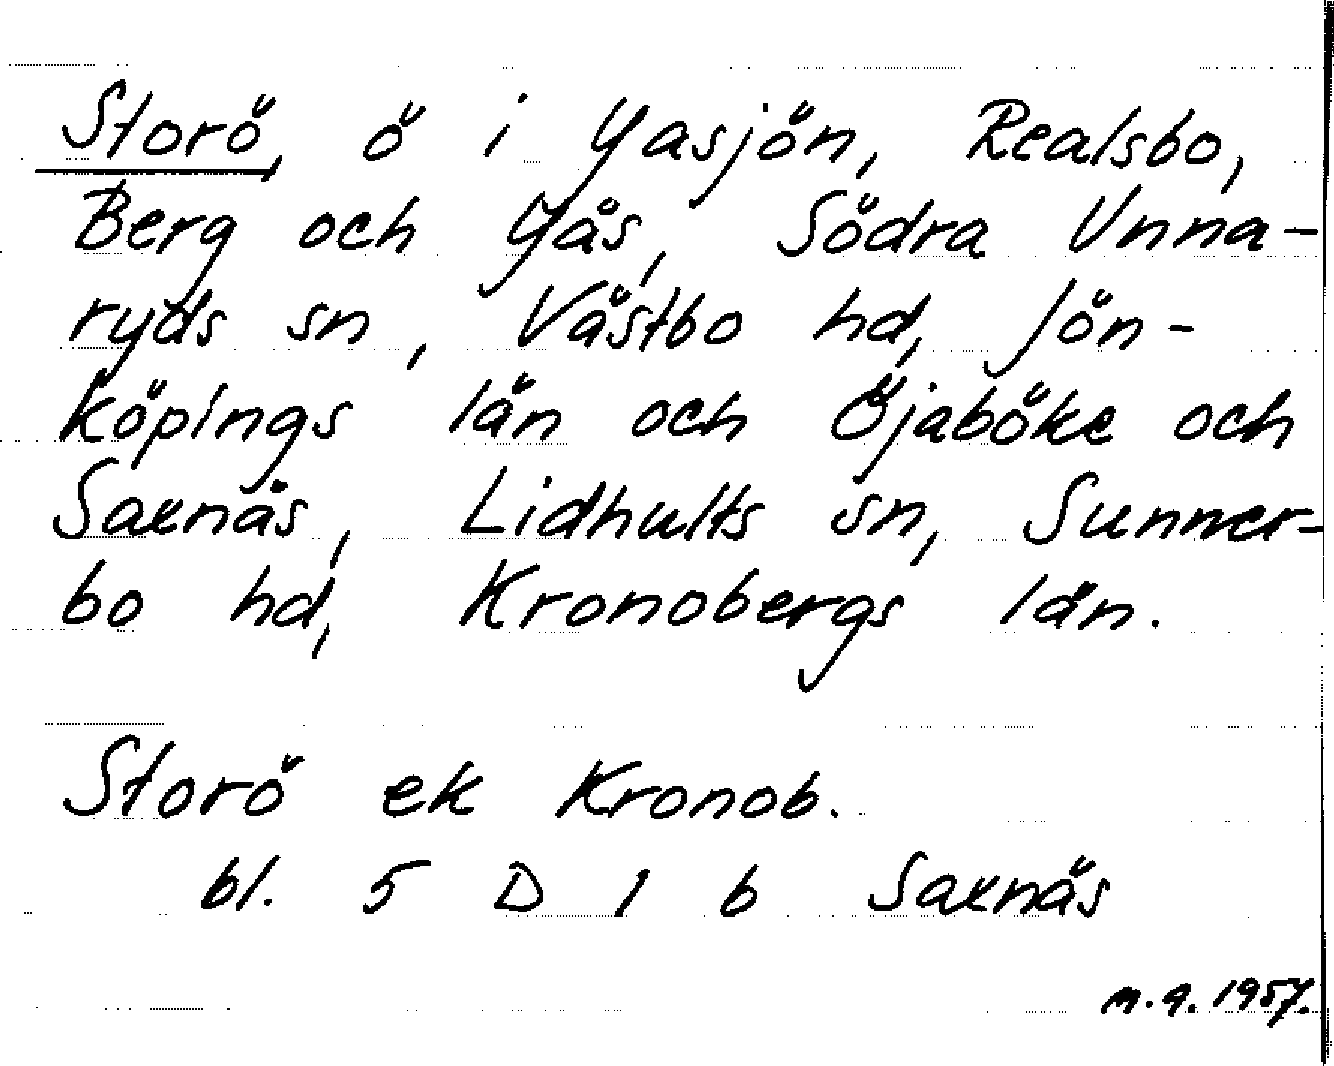 Storö, ö i Yasjön, Realsbo,
Berg och Yås, Södra Unna-
ryds sn, Västbo hd, Jön-
köpings län och Öjaböke och
Saxnäs, Lidhults sn, Sunner-
bo hd, Kronobergs län.
Storö ek Kronob.
bl. 5 D 1 b Saxnäs
1957.